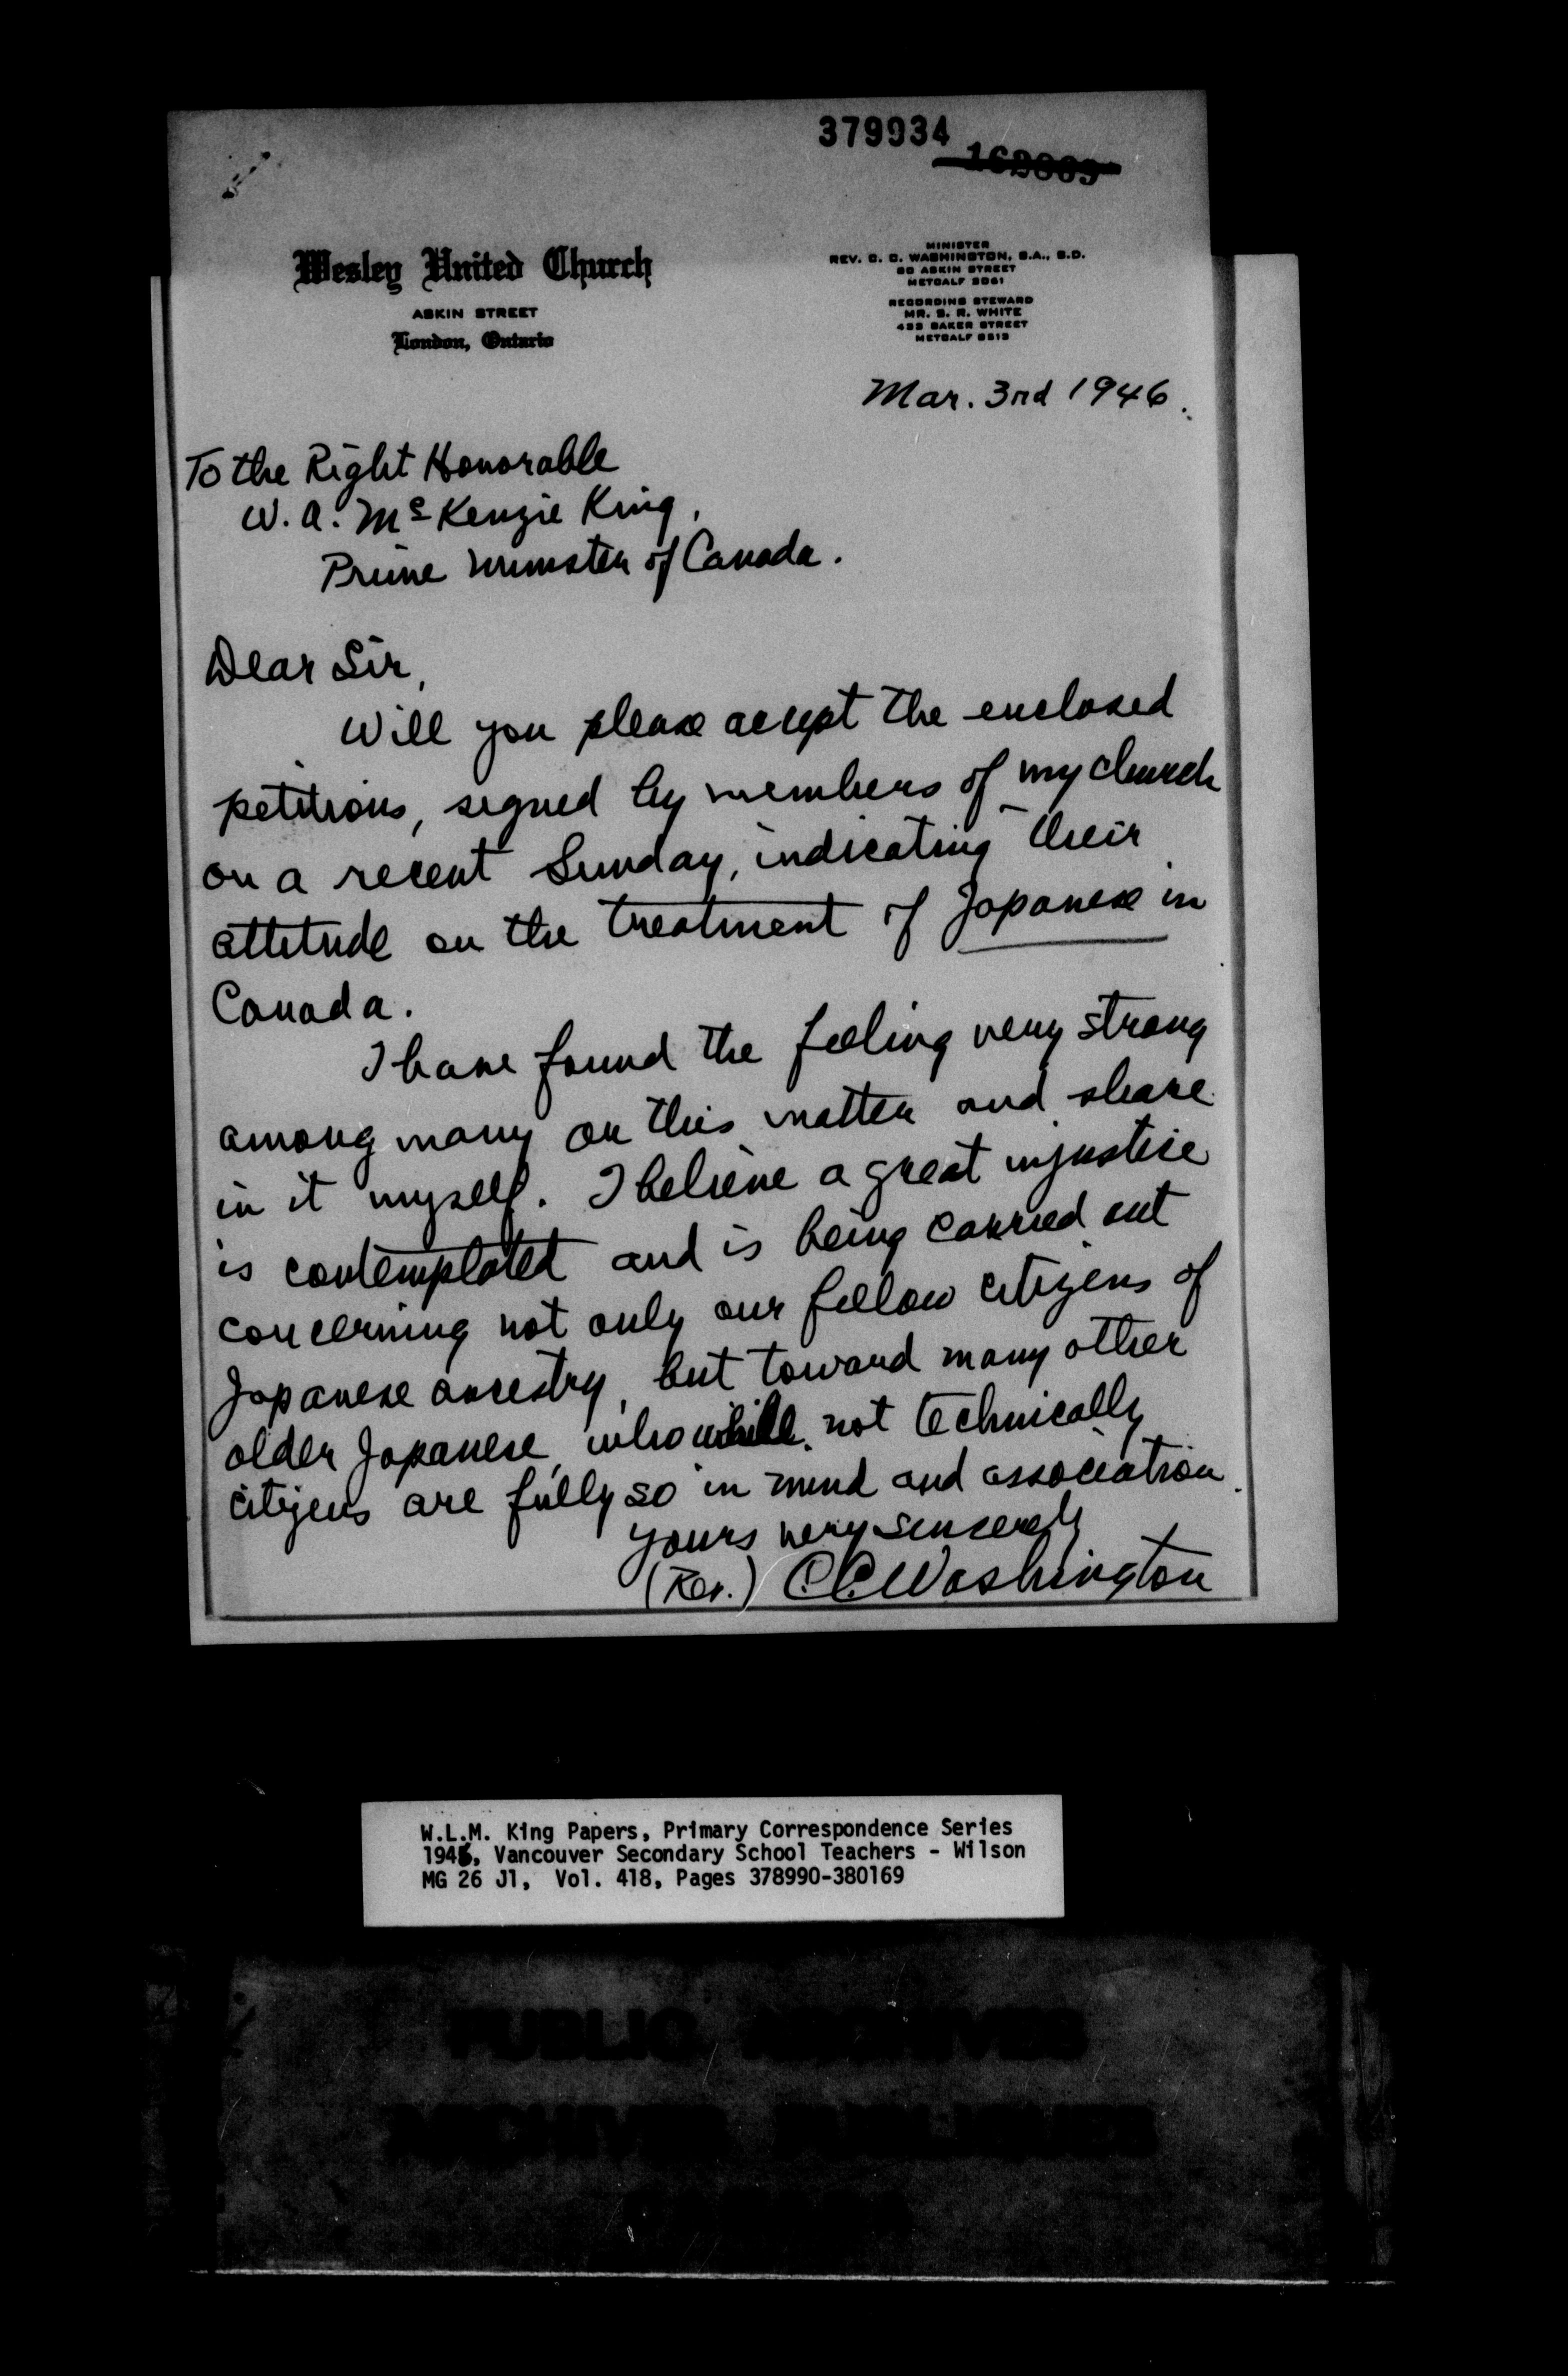 379934
Wesley United Church
ASKIN STREET
London, Ontario
MINISTER
REV. C. C. WASHINGTON, B.A., B.D.
ASKIN STREET
METCALF
RECORDING STEWARD
MR. S. R. WHITE
BAKER STREET
METCALF
Mar. 3rd 1946.
To the Right Honorable
W. A. McKenzie King,
Prime Minister of Canada.
Dear Sir,
Will you please accept the enclosed
petitions, signed by members of my church
on a recent Sunday, indicating their
attitude on the treatment of Japanese in
Canada.
I have found the feeling very strong
among many on this matter and share
in it myself. I believe a great injustice
is contemplated and is being carried out
concerning not only our fellow citizens of
Japanese ancestry, but toward many other
older Japanese, who while not technically
citizens are fully so in mind and association.
Yours very sincerely
(Rev.) C.C. Washington
W.L.M. King Papers, Primary Correspondence Series
1946, Vancouver Secondary School Teachers - Wilson
MG 26 J1, Vol. 418, Pages 378990-380169
PUBLIC ARCHIVES
ARCHIVES PUBLIQUES